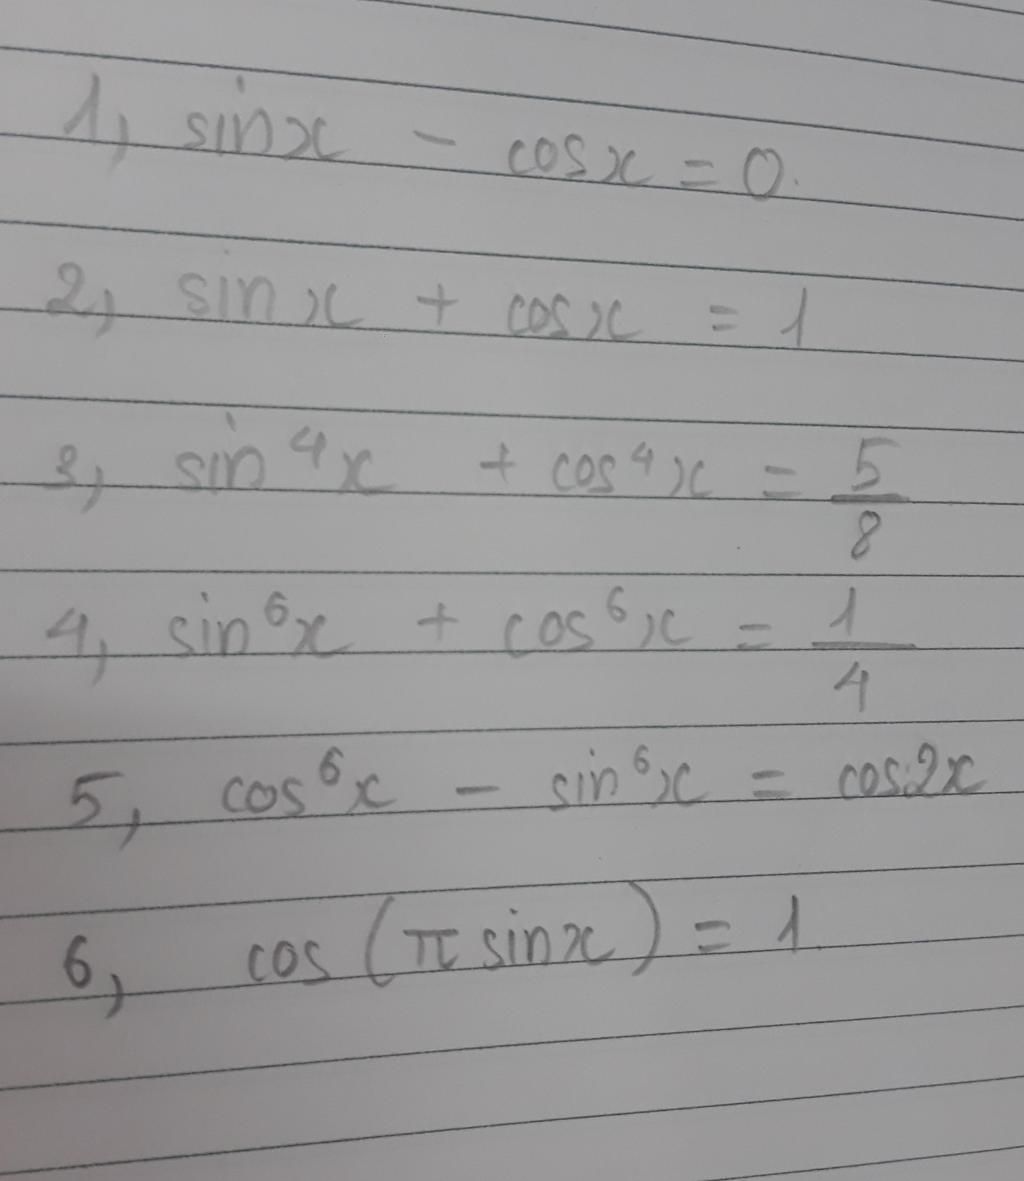 1, sinx - cosx = 0.
2, sinx + cosx = 1
3, sin⁴x + cos⁴x = 5/8
4, sin⁶x + cos⁶x = 1/4
5, cos⁶x - sin⁶x = cos2x
6, cos(π sinx) = 1.